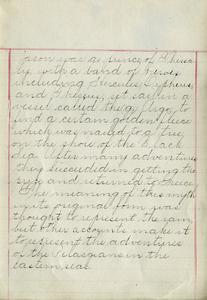 Jason was a prince of Thessa
ly with a band of heroes
including Hercules, Orpheus,
and Theseus, set sail in a
vessel called the Argo, to
find a certain golden fleece
which was nailed to a tree
on the shore of the Black
Sea. After many adventures
they succeeded in getting the
and returned to Greece
The meaning of this myth
in its original form was
thought to represent the rain
but other accounts make it
to represent the adventures
of the Pelasgians in the
eastern seas